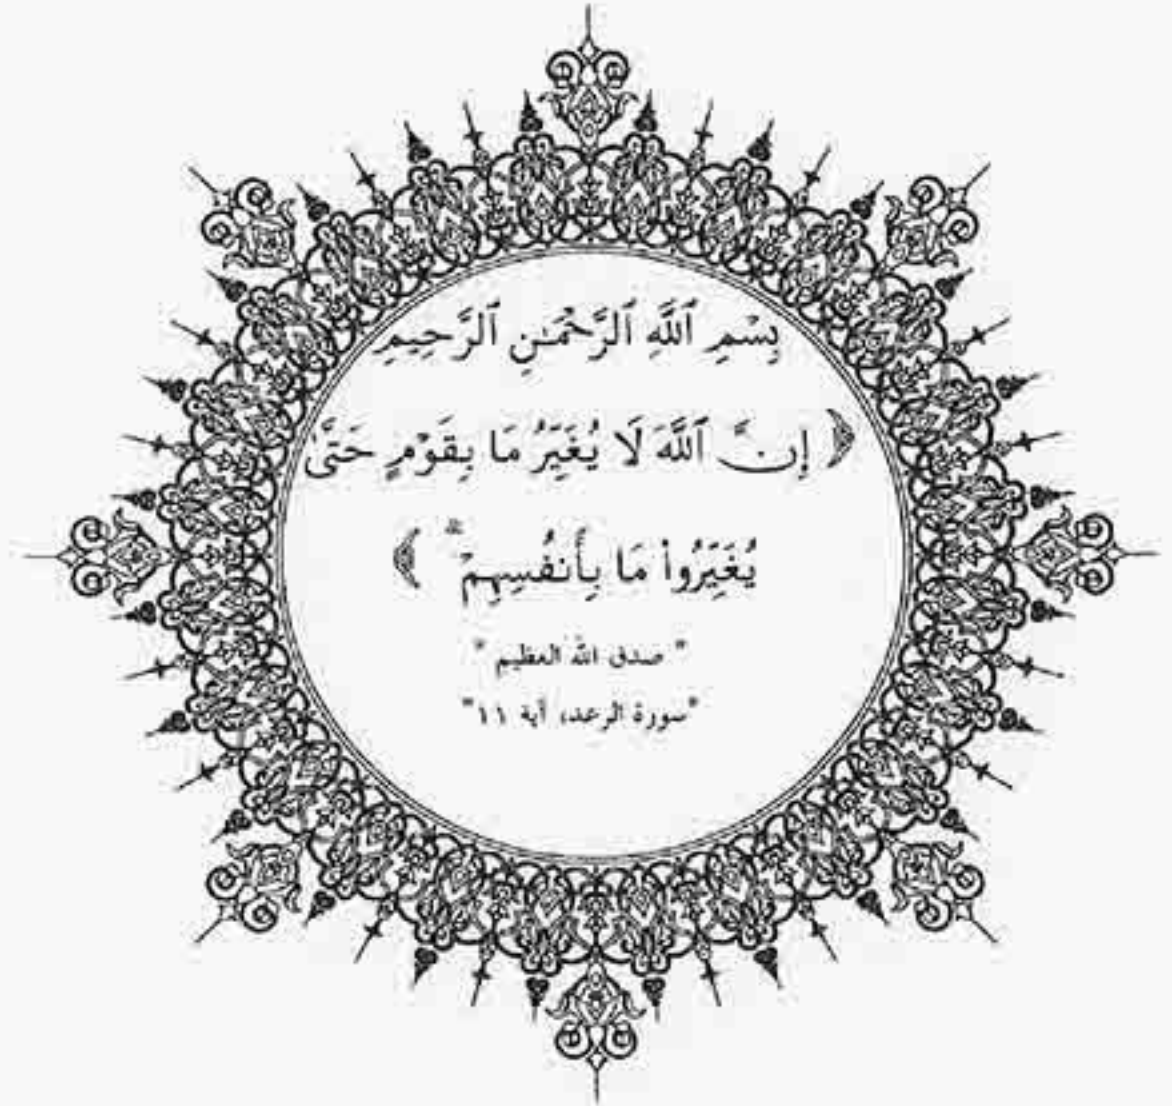 بِسْمِ ٱللَّهِ ٱلرَّحْمَـٰنِ ٱلرَّحِيمِ
﴿ إِنَّ ٱللَّهَ لَا يُغَيِّرُ مَا بِقَوْمٍ حَتَّىٰ
يُغَيِّرُوا۟ مَا بِأَنفُسِهِمْ ۗ ﴾
" صدق الله العظيم "
"سورة الرعد، أية ١١"